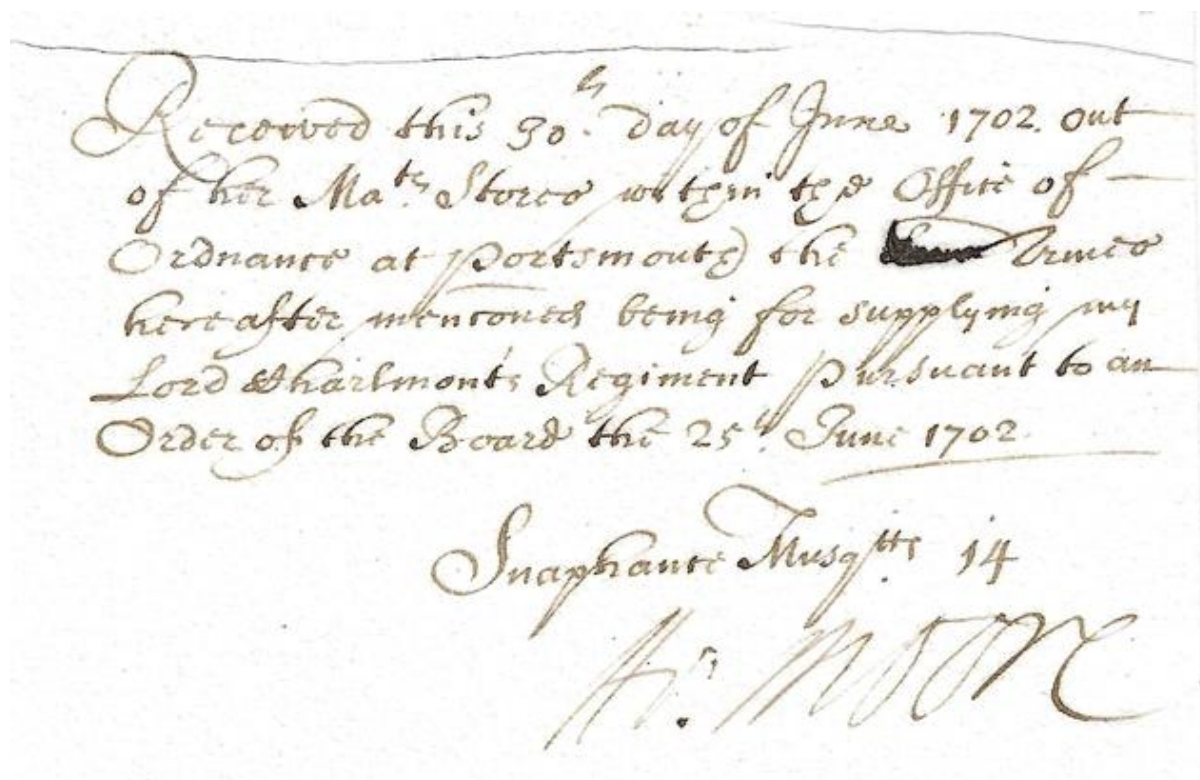 Received this 30th. day of June 1702. out
of her Mats. Stores within the Office of
Ordnance at Portsmouth the Armes
hereafter menconed being for supplying my
Lord Charlmont's Regiment Pursuant to an
Order of the Board the 25th. June 1702.
Snaphance Musqtts 14
Moore